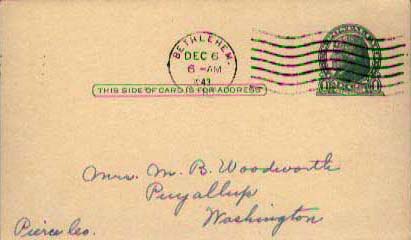 BETHLEHEM.
DEC 6
6-AM
THIS SIDE OF CARD IS FOR ADDRESS
Mrs. M. B. Woodworth
Puyallup
Washington
Pierce Co.